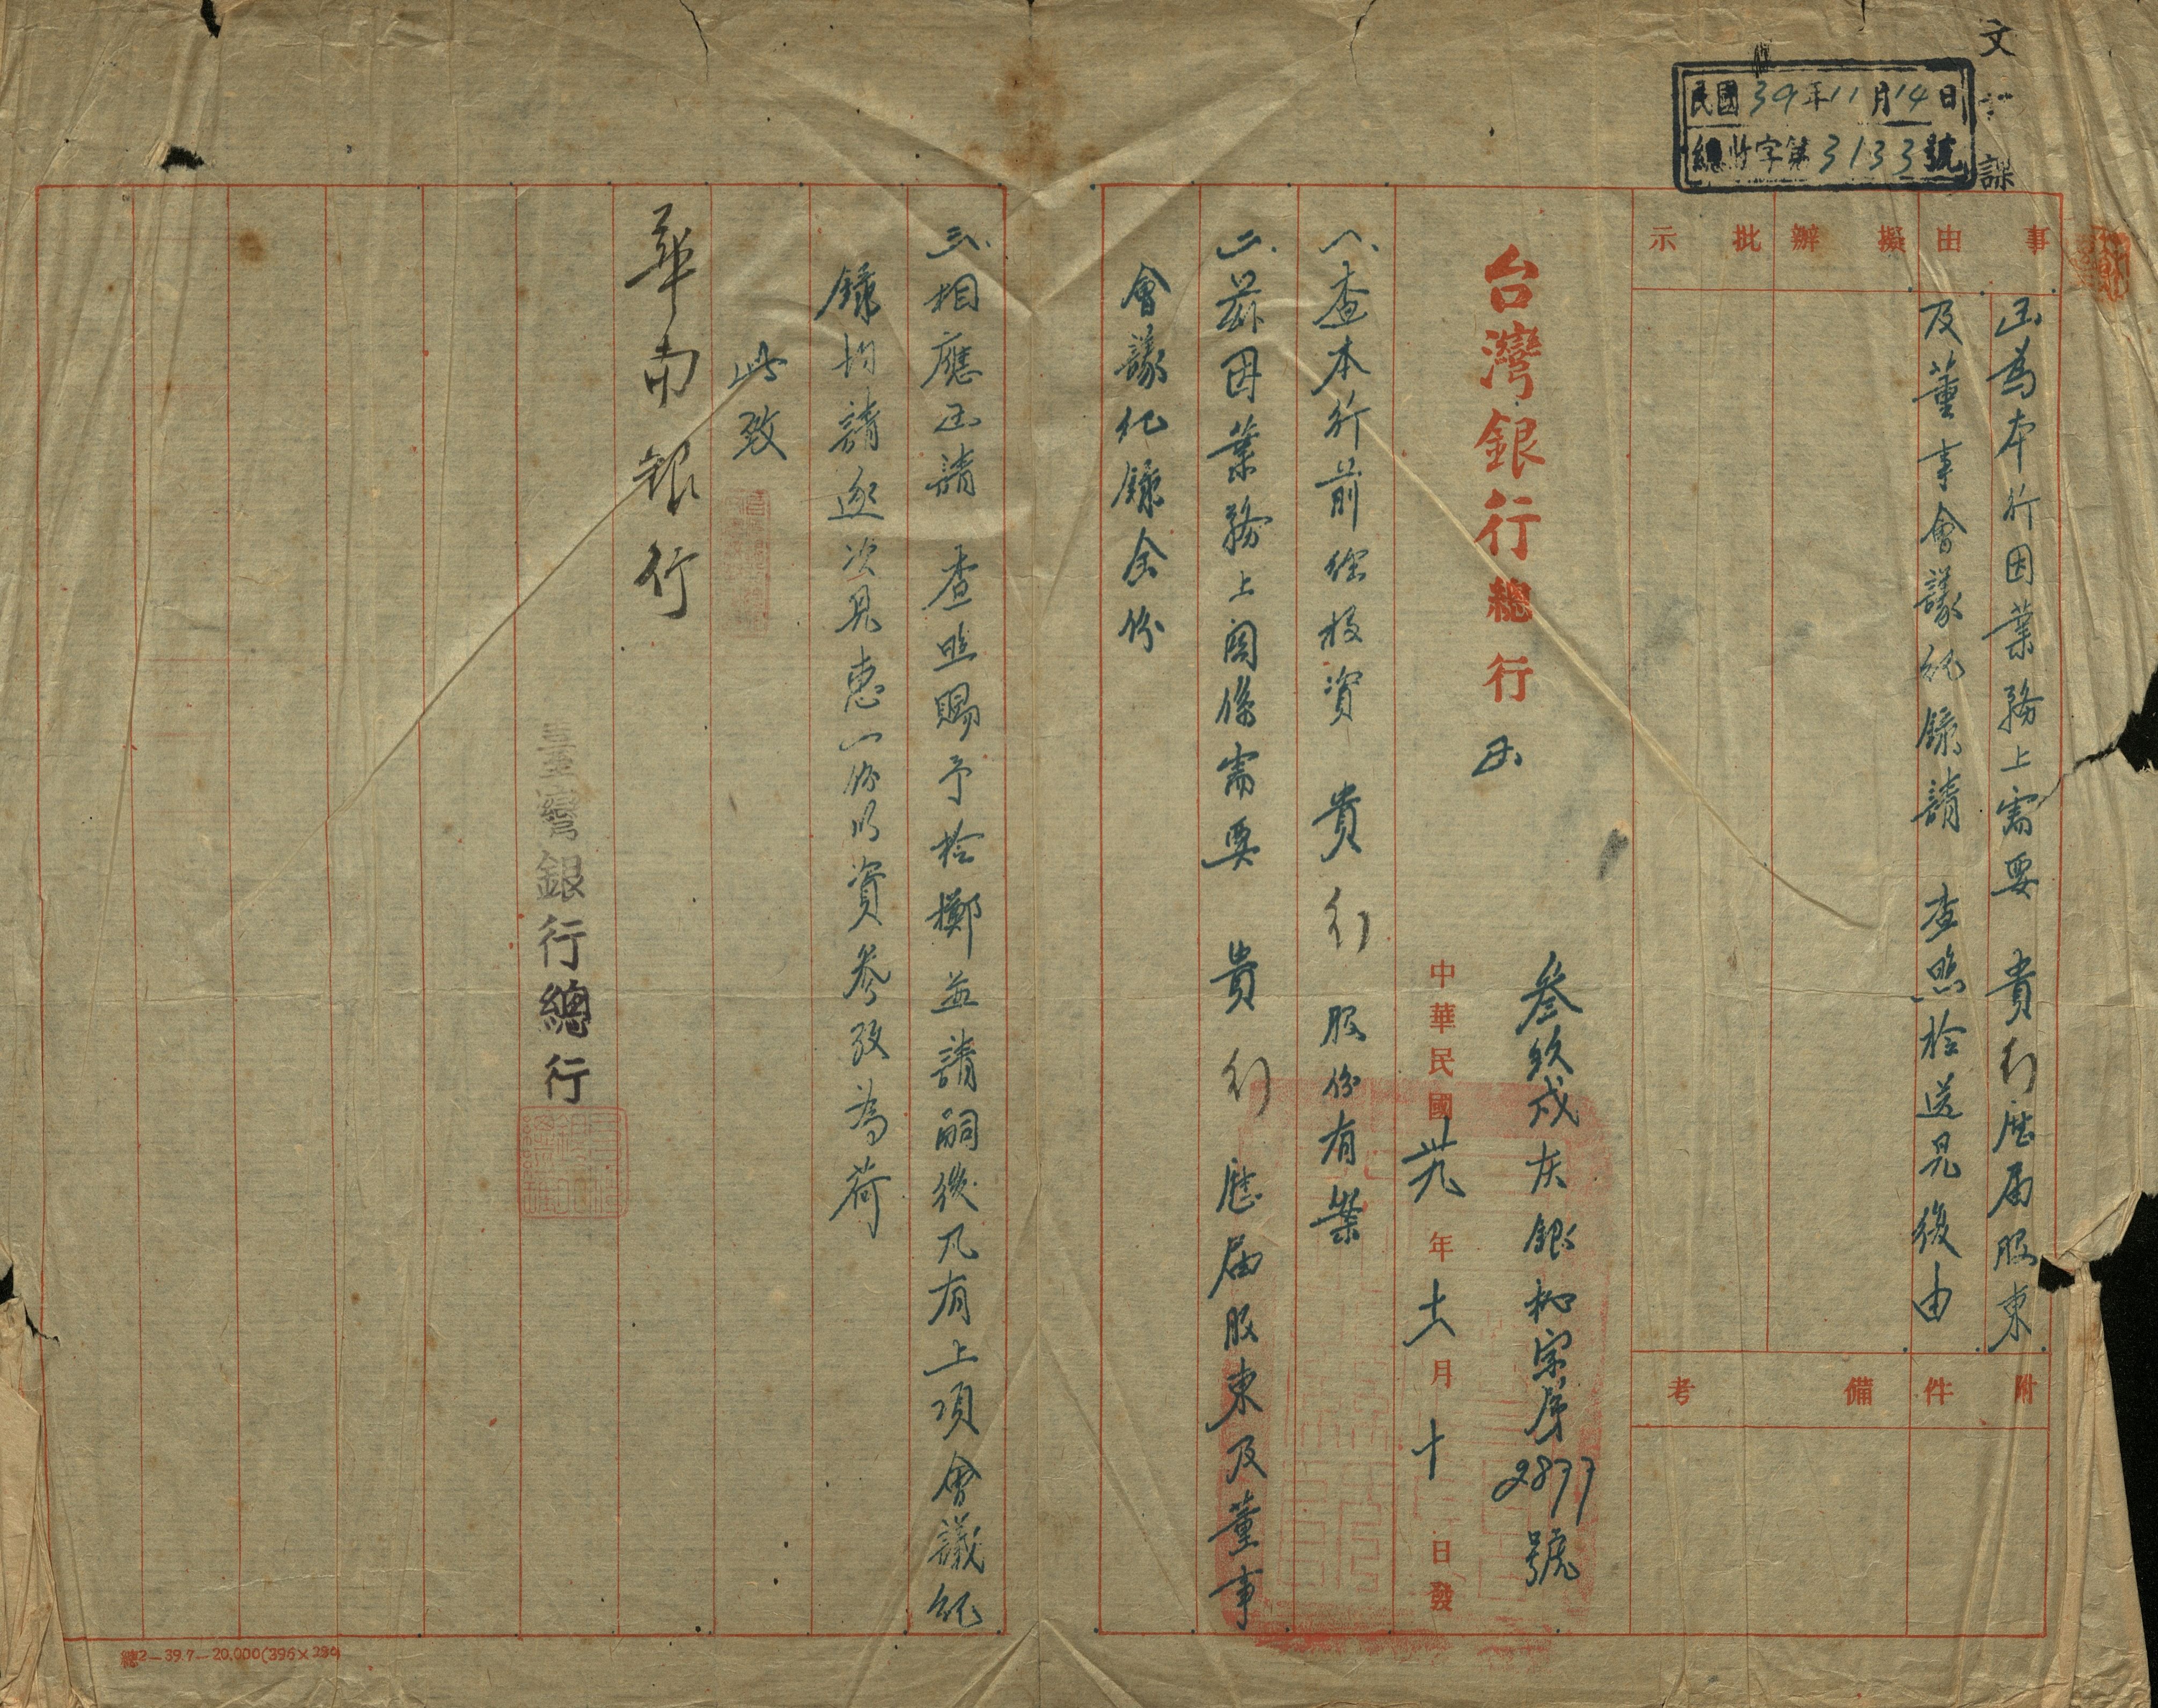 文書課
民國39年11月14日
總收字第3133號
事由
函為本行因業務上需要 貴行歷屆股東
及董事會議紀錄請 查照檢送見復由
擬辦
批示
附件
備考
台灣銀行總行函
叁玖戌灰銀秘案第2877號
中華民國卅九年十一月十日發
一、查本行前經投資 貴行股份有案
二、茲因業務上關係需要 貴行歷屆股東及董事
會議紀錄全份
三、相應函請 查照賜予檢擲並請嗣後凡有上項會議紀
錄均請逐次見惠一份以資參攷為荷
此致
華南銀行
臺灣銀行總行
總2—39.7—20,000(396×280)